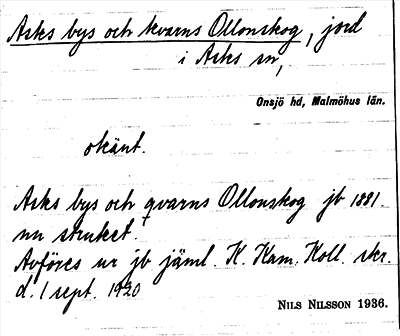 Asks bys och kvarns Ollonskog, jord
i Asks sn,
Onsjö hd, Malmöhus län.
okänt.
Asks bys och qvarns Ollonskog jb 1881.
nu struket
Avföres ur jb jäml. K. Kam. Koll. skr.
d. 1 sept. 1920
NILS NILSSON 1936.